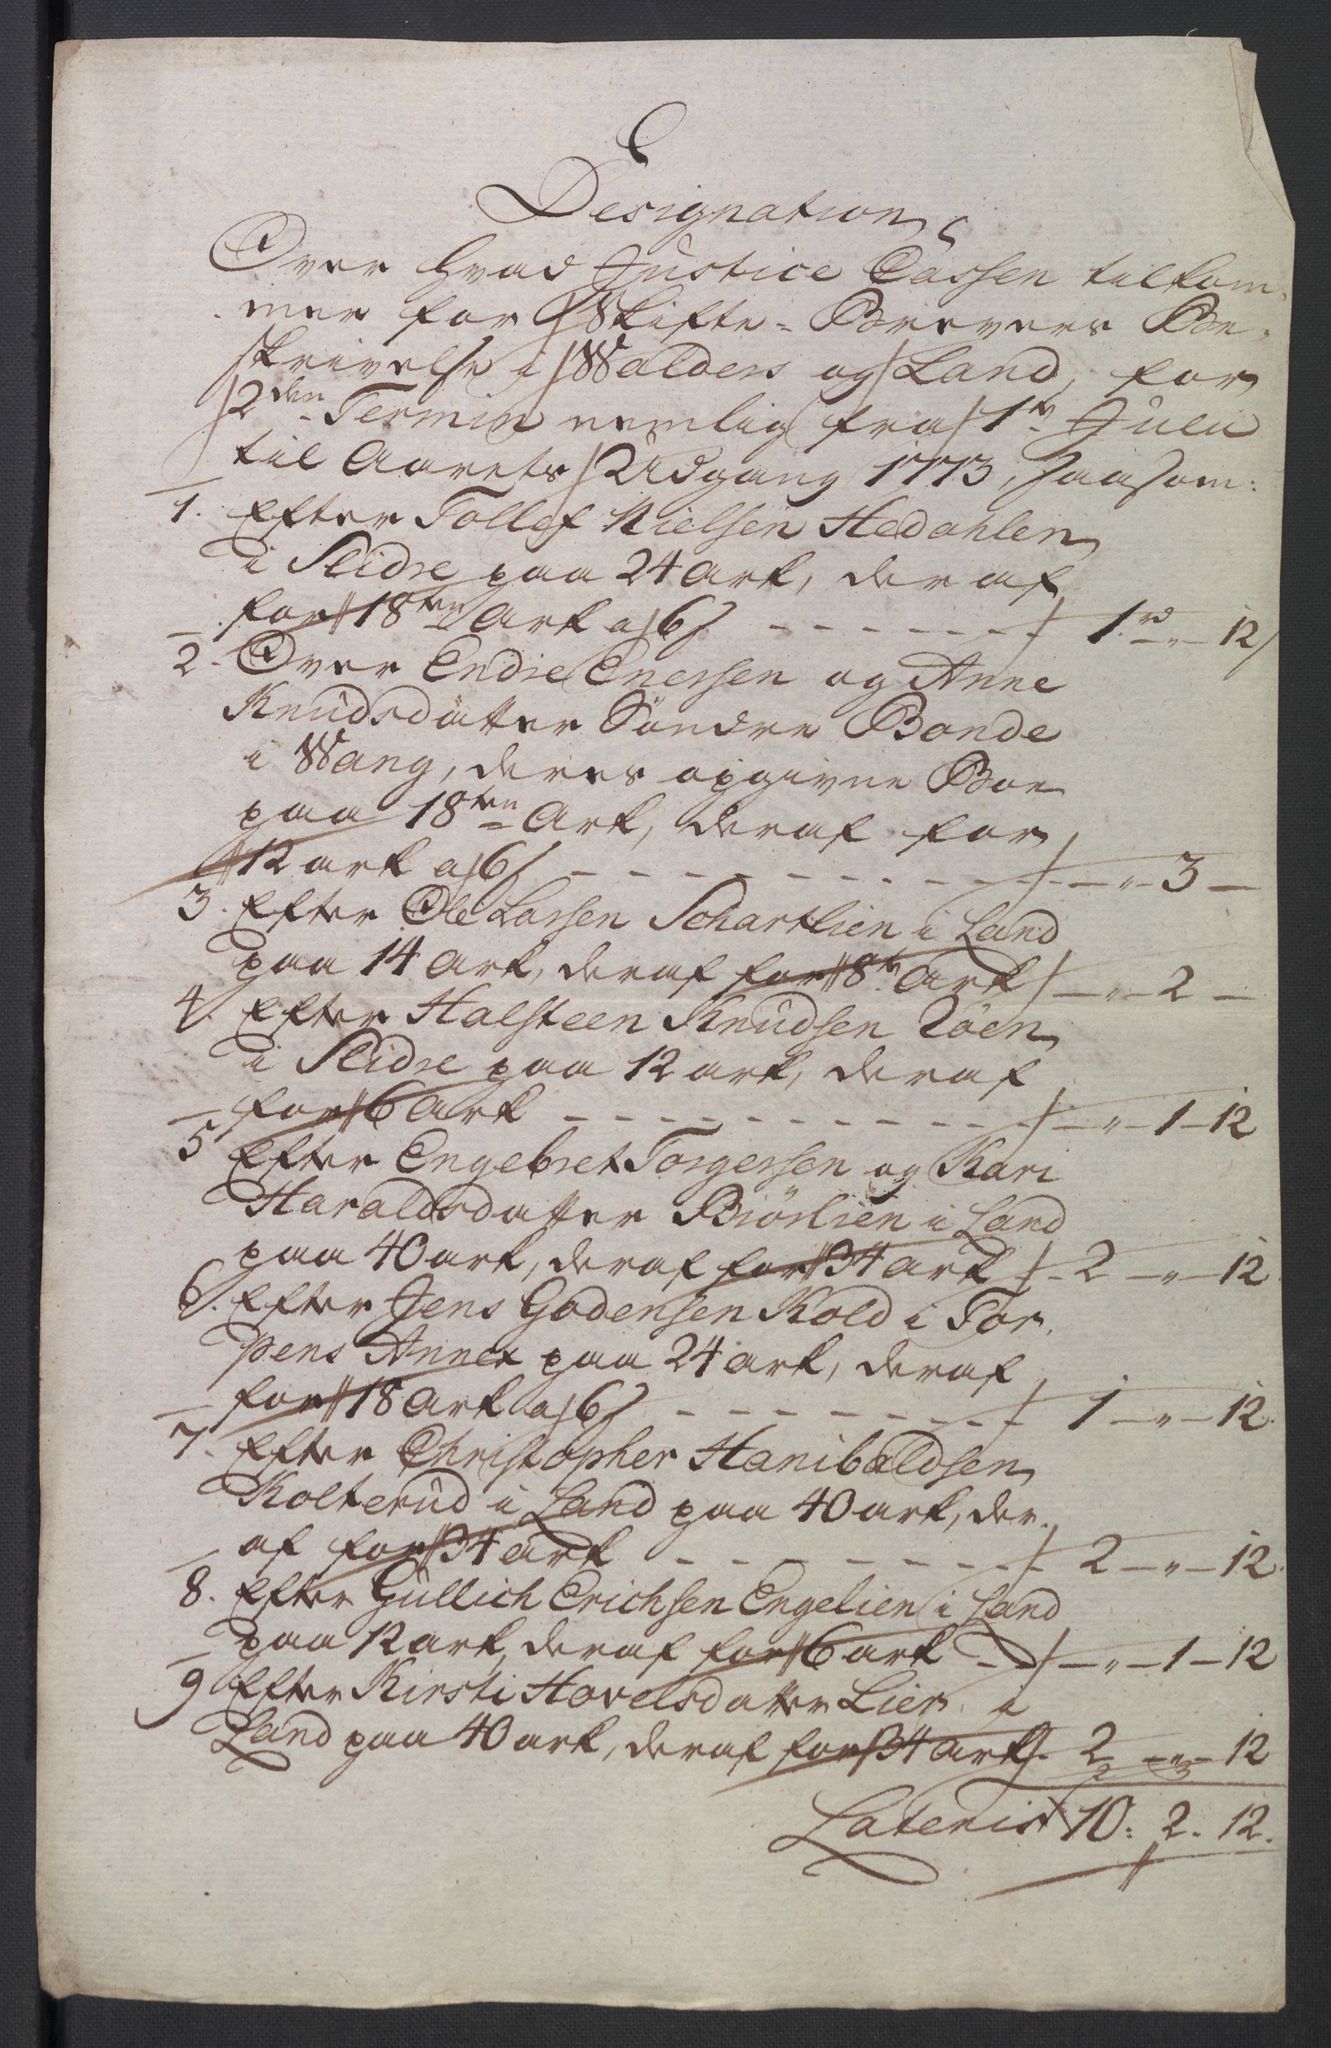 Designation
Over Hvad Justice Cassen tilkom-
mer for Skifte-Brevers Be-
skrivelse i Walders og Land, for
2den Termin nemlig fra 1te Julii
til Aarets Udgang 1773, saasom:
1. Efter Tollef Nielsen Hedahlen
i Slidre paa 24 Ark, deraf
for 18ten Ark a 6 s - - - - - - 1 rd " - 12 s
2. Over Endre Enersen og Anne
Knudsdatter Søndre Bonde
i Wang, deres opgivne Boe
paa 18ten Ark, deraf for
12 ark a 6 s - - - - - - - - - " - 3 -
3. Efter Ole Larsen Schartlien i Land
paa 14 Ark, deraf for 8te Ark - " - 2 -
4. Efter Halsteen Knudsen Røen
i Slidre paa 12 ark, deraf
for 6 Ark - - - - - - - - - " - 1 - 12
5 Efter Engebret Torgersen og Kari
Haraldsdatter Biørlien i Land
paa 40 ark, deraf for 34 ark - 2 - " - 12
6. Efter Jens Godensen Kold i Tor-
pens Annex paa 24 ark, deraf
for 18 Ark a 6 s - - - - - - - 1 - " - 12
7. Efter Christopher Hanibaldsen
Kolterud i Land paa 40 ark, der-
af for 34 ark - - - - - - - 2 - " - 12
8. Efter Gullich Erichsen Engelien i Land
paa 12 ark, deraf for 6 ark - - - " - 1 - 12
9 Efter Kirsti Hovelsdatter Lier i
Land paa 40 ark, deraf for 34 ark - 2 - " - 12
2 3
Lateris 10: 2. 12.